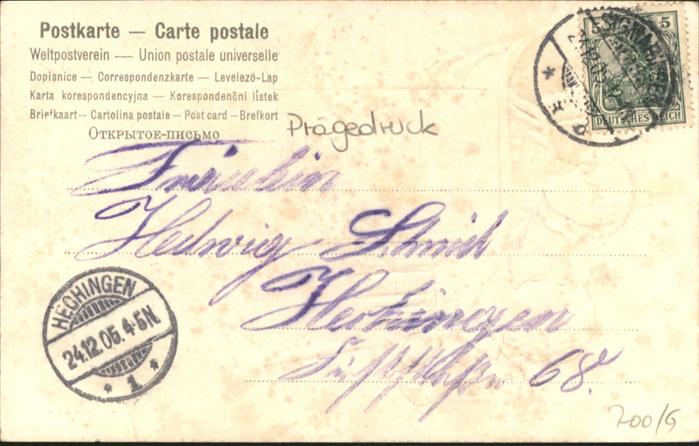 Postkarte — Carte postale
Weltpostverein — Union postale universelle
Dopisnice — Correspondenzkarte — Levelező-Lap
Karta korespondencyjna — Korespondenční lístek
Briefkaart — Cartolina postale — Post card — Brefkort
Открытое-письмо
5 5
DEUTSCHES REICH
Prägedruck
Fräulein
Hedwig Schmid
Hechingen
68.
HECHINGEN
24.12.05.4-5N.
* 1 *
700/G